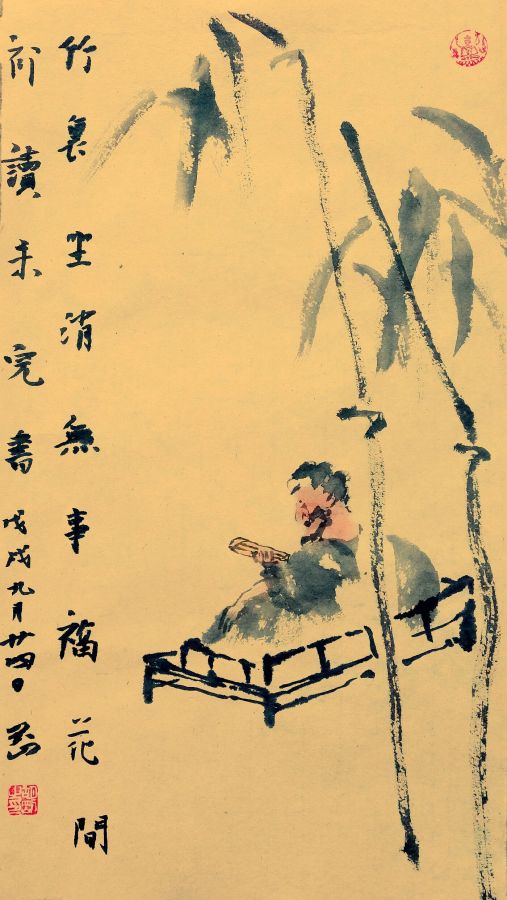 竹裏坐消無事福花間
补讀未完書 戊戌九月廿四日